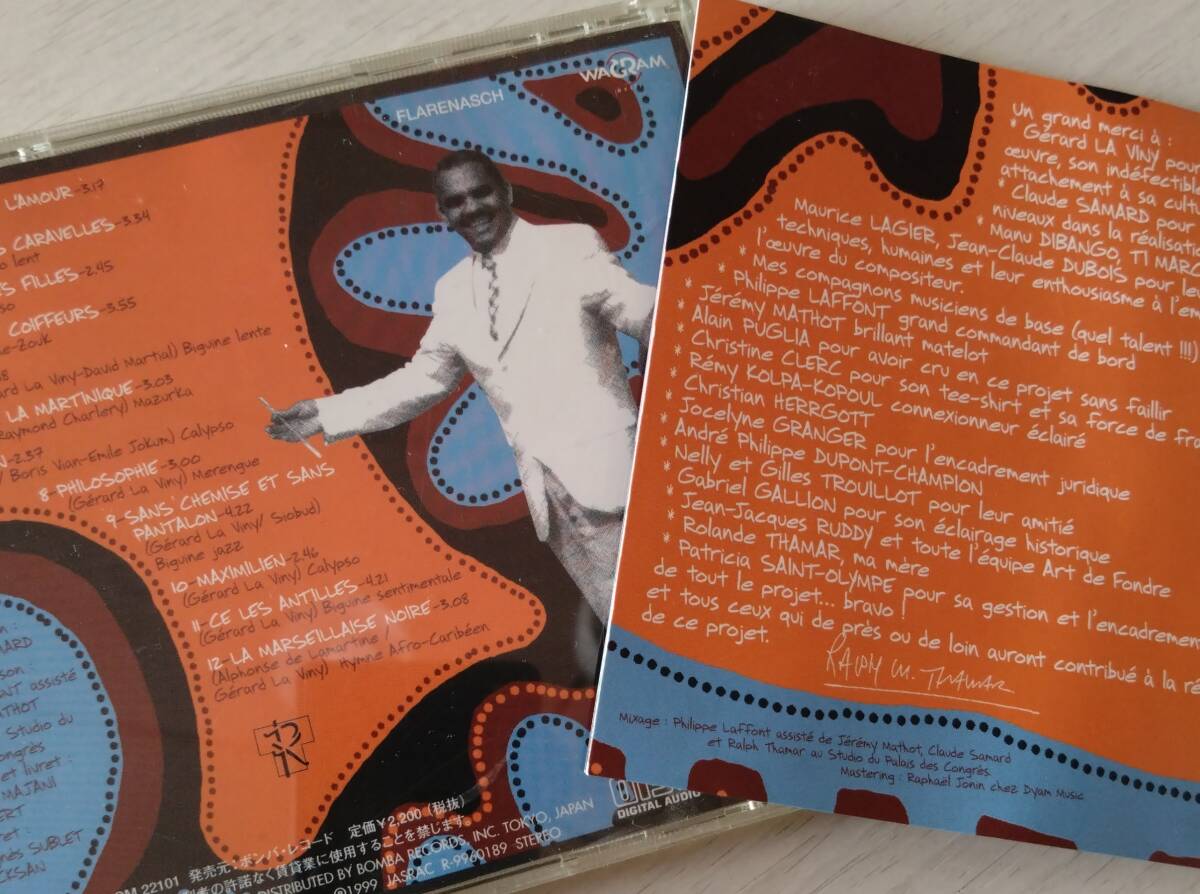 WAGRAM
FLARENASCH
L'AMOUR-3.17
CARAVELLES-3.34
lent
FILLES-2.45
COIFFEURS-3.55
-Zouk
La Viny-David Martial) Biguine lente
LA MARTINIQUE-3.03
Raymond Charlery) Mazurka
2.37
Boris Vian-Emile Jokum) Calypso
8-PHILOSOPHIE-3.00
(Gérard La Viny) Merengue
9-SANS CHEMISE ET SANS
PANTALON-4.22
(Gérard La Viny/ Siobud)
Biguine jazz
10-MAXIMILIEN-2.46
(Gérard La Viny) Calypso
11-CE LES ANTILLES-4.21
(Gérard La Viny) Biguine Sentimentale
12-LA MARSEILLAISE NOIRE-3.08
(Alphonse de Lamartine /
Gérard La Viny) Hymne Afro-Caribéen
assisté
Studio du
et livret :
MAJANI
SUBLET
22101 発売元:ボンバ・レコード 定価¥2,200(税抜)
の許諾なく賃貸業に使用することを禁じます。
DISTRIBUTED BY BOMBA RECORDS, INC. TOKYO, JAPAN
©1999 JASRAC R-9960189 STEREO
DIGITAL AUDIO
Un grand merci à :
* Gérard LA VINY pour
œuvre, son indéfectible
attachement à sa cult
* Claude SAMARD pour
niveaux dans la réalisat
* Manu DIBANGO, TI MARC
Maurice LAGIER, Jean-Claude DUBOIS pour le
techniques, humaines et leur enthousiasme à l'en
l'œuvre du compositeur.
* Mes compagnons musiciens de base (quel talent !!!)
* Philippe LAFFONT grand commandant de bord
* Jérémy MATHOT brillant matelot
* Alain PUGLIA pour avoir cru en ce projet sans faillir
* Christine CLERC pour son tee-shirt et sa force de fra
* Rémy KOLPA-KOPOUL connexionneur éclairé
* Christian HERRGOTT
* Jocelyne GRANGER pour l'encadrement juridique
* André Philippe DUPONT-CHAMPION
* Nelly et Gilles TROUILLOT pour leur amitié
* Gabriel GALLION pour son éclairage historique
* Jean-Jacques RUDDY et toute l'équipe Art de Fondre
* Rolande THAMAR, ma mère
* Patricia SAINT-OLYMPE pour sa gestion et l'encadremen
de tout le projet... bravo !
et tous ceux qui de près ou de loin auront contribué à la ré
de ce projet.
RALPH M. THAMAR
Mixage : Philippe Laffont assisté de Jérémy Mathot, Claude Samard
et Ralph Thamar au Studio du Palais des Congrès.
Mastering : Raphaël Jonin chez Dyam Music